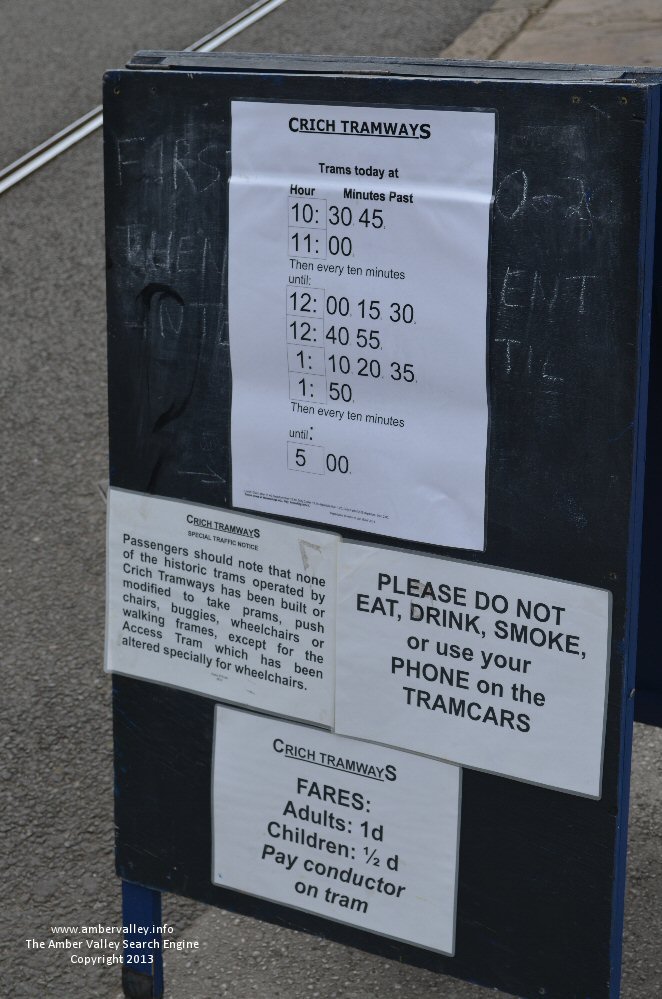 CRICH TRAMWAYS
Trams today at
Hour Minutes Past
10: 30 45
11: 00
Then every ten minutes
until:
12: 00 15 30
12: 40 55
1: 10 20 35
1: 50
Then every ten minutes
until:
5 00
CRICH TRAMWAYS
SPECIAL TRAFFIC NOTICE
Passengers should note that none
of the historic trams operated by
Crich Tramways has been built or
modified to take prams, push
chairs, buggies, wheelchairs or
walking frames, except for the
Access Tram which has been
altered specially for wheelchairs.
PLEASE DO NOT
EAT, DRINK, SMOKE,
or use your
PHONE on the
TRAMCARS
CRICH TRAMWAYS
FARES:
Adults: 1d
Children: ½ d
Pay conductor
on tram
www.ambervalley.info
The Amber Valley Search Engine
Copyright 2013